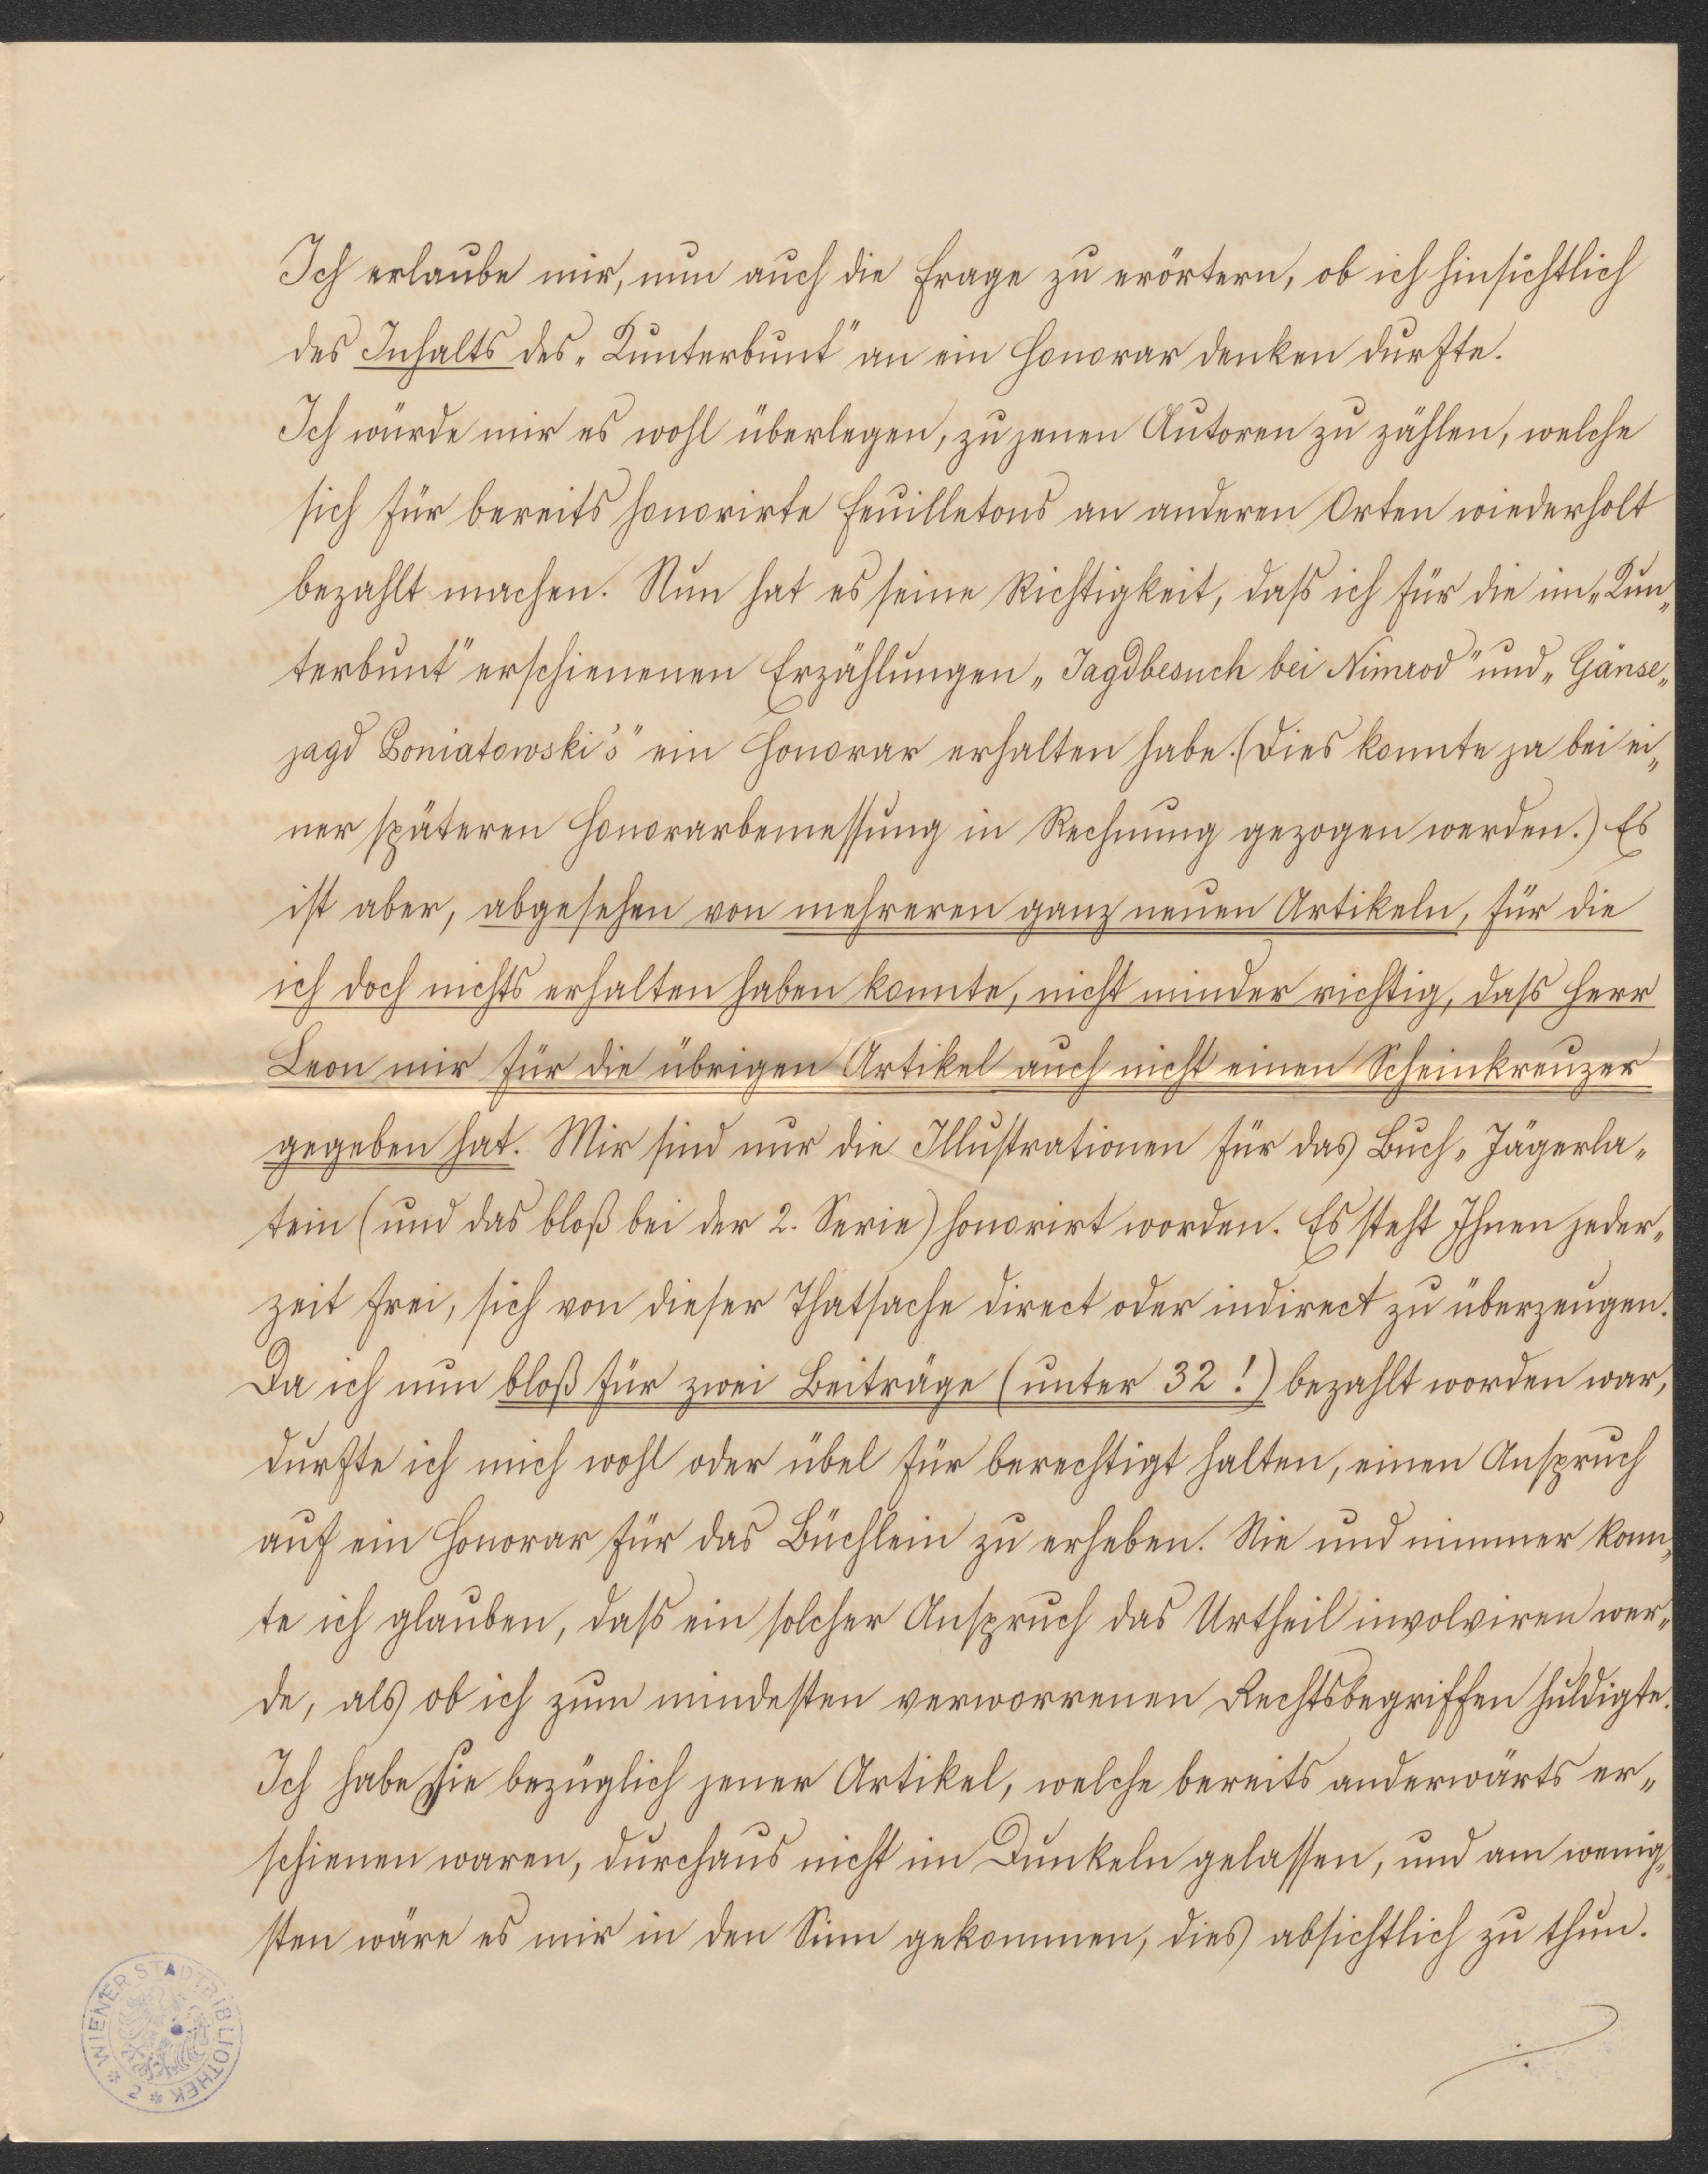 Ich erlaube mir, nun auch die Frage zu erörtern, ob ich hinsichtlich
des Inhalts des „Kunterbunt" an ein Honorar denken durfte.
Ich würde mir es wohl überlegen, zu jenen Autoren zu zählen, welche
sich für bereits honorirte Feuilletons an anderen Orten wiederholt
bezahlt machen. Nun hat es seine Richtigkeit, dass ich für die im „Kun„
terbunt" erschienenen Erzählungen „Jagdbesuch bei Nimrod" und „Gänse„
jagd Poniatowski's" ein Honorar erhalten habe. (Dies konnte ja bei ei„
ner späteren Honorarbemessung in Rechnung gezogen werden.) Es
ist aber, abgesehen von mehreren ganz neuen Artikeln, für die
ich doch nichts erhalten haben konnte, nicht minder richtig, dass Herr
Leon mir für die übrigen Artikel auch nicht einen Scheinkreuzer
gegeben hat. Mir sind nur die Illustrationen für das Buch „Jägerla„
tein (und das bloß bei der 2. Serie) honorirt worden. Es steht Ihnen jeder„
zeit frei, sich von dieser Thatsache direct oder indirect zu überzeugen.
Da ich nun bloß für zwei Beiträge (unter 32!) bezahlt worden war,
durfte ich mich wohl oder übel für berechtigt halten, einen Anspruch
auf ein Honorar für das Büchlein zu erheben. Nie und nimmer konn„
te ich glauben, dass ein solcher Anspruch das Urtheil involviren wer„
de, als ob ich zum mindesten verworrenen Rechtsbegriffen huldigte.
Ich habe Sie bezüglich jener Artikel, welche bereits anderwärts er„
schienen waren, durchaus nicht im Dunkeln gelassen, und am wenig„
sten wäre es mir in den Sinn gekommen, dies absichtlich zu thun.
./.
* WIENER STADTBIBLIOTHEK * 2